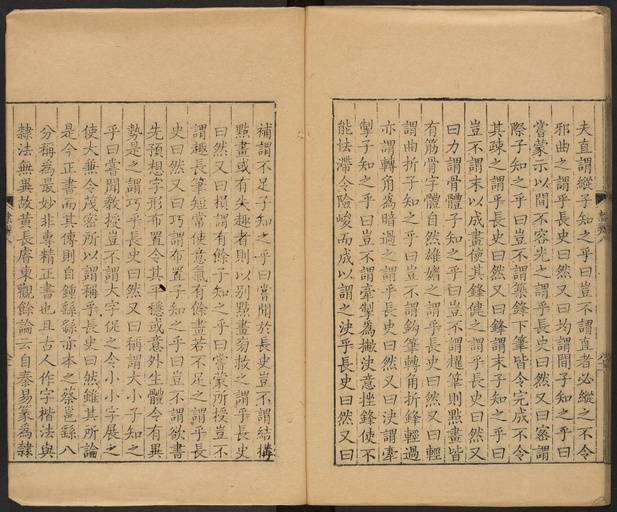 夫直謂縱子知之乎曰豈不謂直者必縱之不令
邪曲之謂乎長史曰然又曰均謂間子知之乎曰
嘗蒙示以間不容光之謂乎長史曰然又曰密謂
際子知之乎曰豈不謂築鋒下筆皆令完成不令
其疎之謂乎長史曰然又曰鋒謂末子知之乎曰
豈不謂末以成畫使其鋒健之謂乎長史曰然又
曰力謂骨體子知之乎曰豈不謂趯筆則點畫皆
有筋骨字體自然雄媚之謂乎長史曰然又曰輕
謂曲折子知之乎曰豈不謂鈎筆轉角折鋒輕過
亦謂轉角為暗過之謂乎長史曰然又曰決謂牽
掣子知之乎曰豈不謂牽掣為撇決意挫鋒使不
能怯滯令險峻而成以謂之決乎長史曰然又曰
補謂不足子知之乎曰嘗聞於長史豈不謂結構
點畫或有失趣者則以別點畫旁救之謂乎長史
曰然又曰損謂有餘子知之乎曰嘗蒙所授豈不
謂趣長筆短常使意氣有餘畫若不足之謂乎長
史曰然又曰巧謂布置子知之乎曰豈不謂欲書
先預想字形布置令其平穩或意外生體令有異
勢是之謂巧乎長史曰然又曰稱謂大小子知之
乎曰嘗聞教授豈不謂大字促之令小小字展之
使大兼令茂密所以謂稱乎長史曰然雖其所論
是今正書而其傳則自鍾繇繇亦本之蔡邕繇八
分稱為最妙非專精正書也且古人作字楷法與
隸法無異故黃長睿東觀餘論云自秦易篆為隸